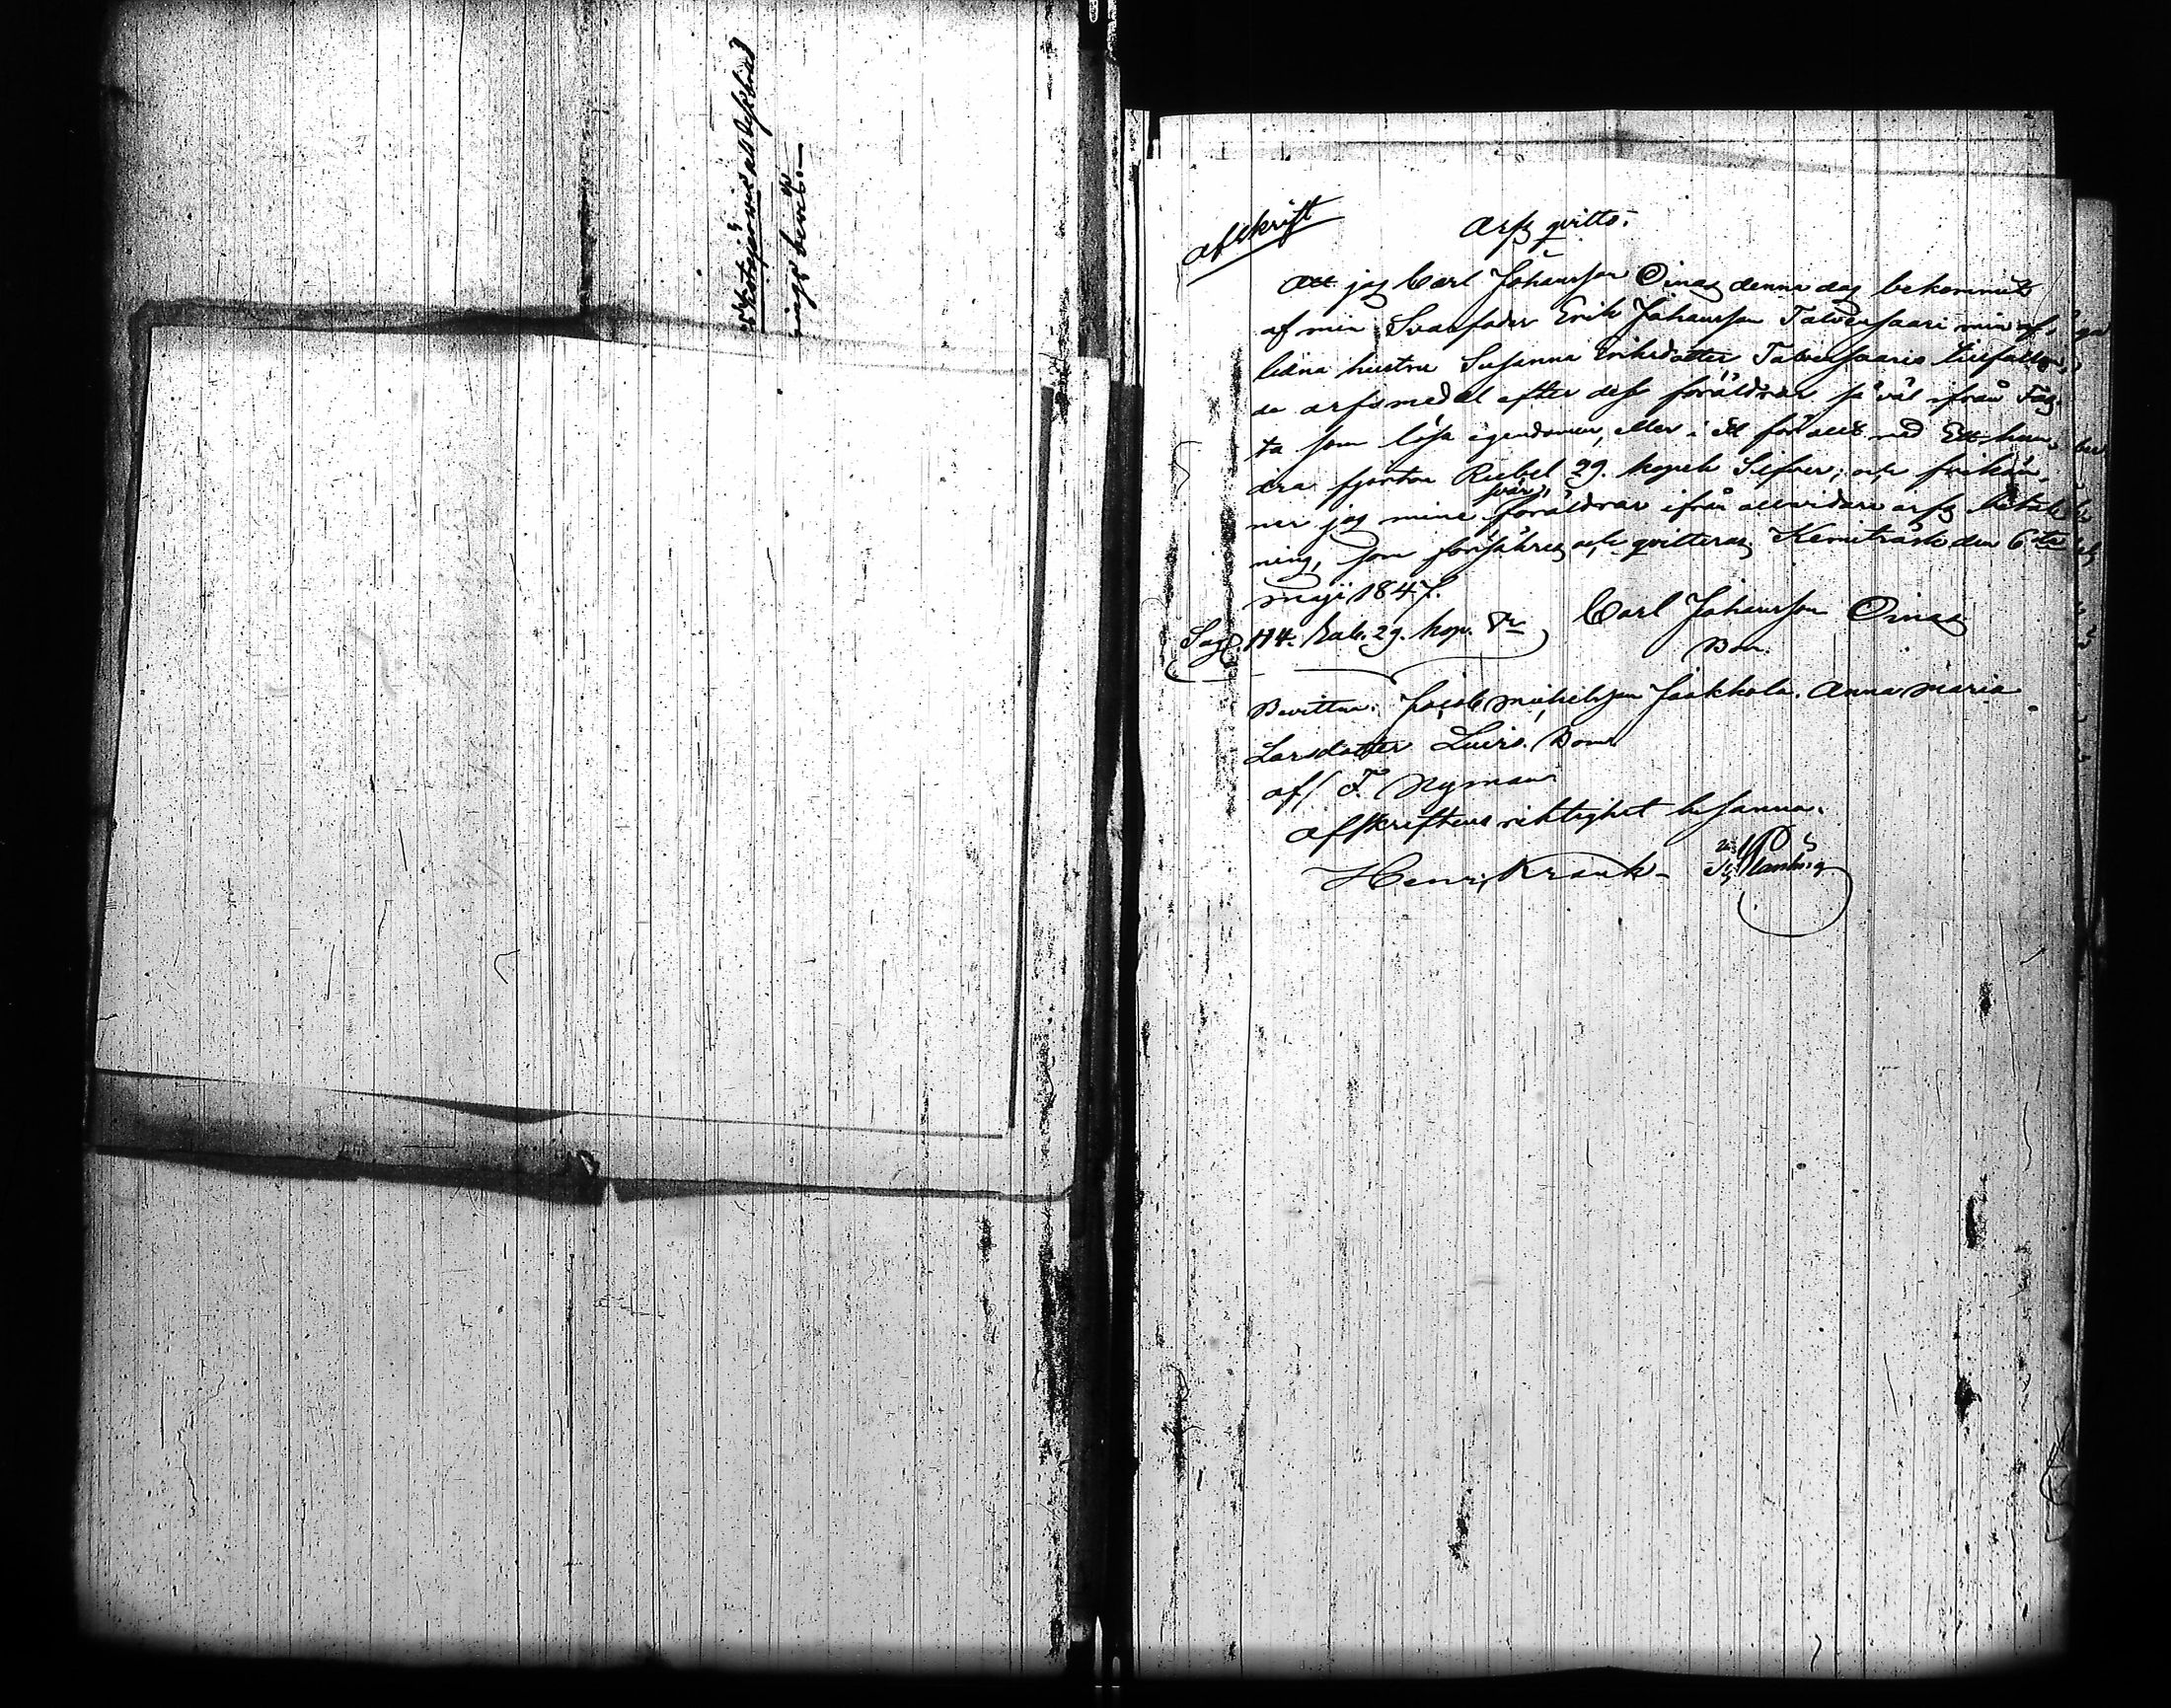 afskrift
Arfs qvitto.
Att jag Carl Johansson Oinas denna dag bekommit
af min Svärfader Erik Johansson Talvensaari min af,
lidna hustru Susanna Eriksdotter Talvensaaris tillfallan,
de arfsmedel efter dess föräldrar så väl ifrån Fas,
ta som lösa egendomen, eller i ett för allt med Ett hun,
dra fjorton Rubel 29. kopek Silfver; och frikän,
ner jag mine svär,föräldrar ifrån all vidare arfs betal
ning, som försäkras och qvitteras Kemiträsk den 6te
maji 1847.
Carl Johansson Oinas
Bon.
Säger 114. Rub. 29. kop. Sr
Bevittna: Jacob Michelsson Jaakkola. Anna Maria
Larsdotter Luiro. Bom
af/ F. Nyman
Afskriftens riktighet besanna.
Henr, Krank